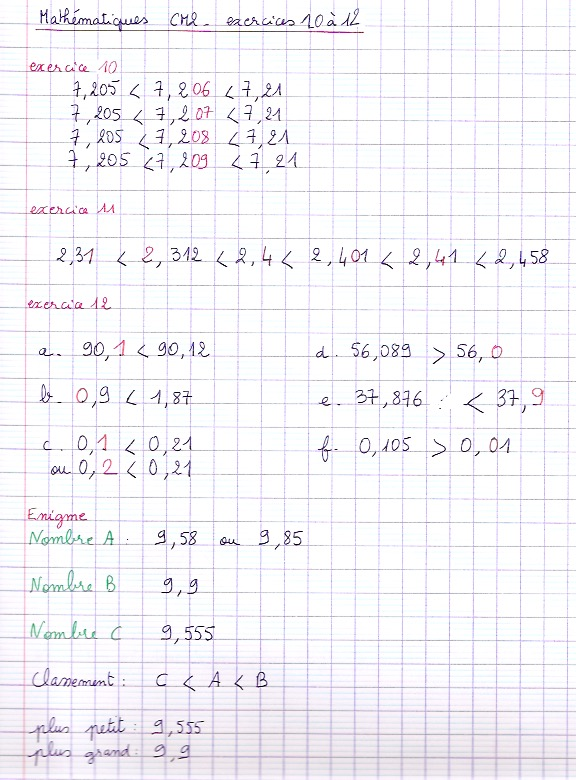 Mathématiques CM2 - exercices 10 à 12
exercice 10
7,205 < 7,206 < 7,21
7,205 < 7,207 < 7,21
7,205 < 7,208 < 7,21
7,205 < 7,209 < 7,21
exercice 11
2,31 < 2,312 < 2,4 < 2,401 < 2,41 < 2,458
exercice 12
a. 90,1 < 90,12
d. 56,089 > 56,0
b. 0,9 < 1,87
e. 37,876 < 37,9
c. 0,1 < 0,21
ou 0,2 < 0,21
f. 0,105 > 0,01
Enigme
Nombre A : 9,58 ou 9,85
Nombre B 9,9
Nombre C 9,555
Classement : C < A < B
plus petit : 9,555
plus grand : 9,9